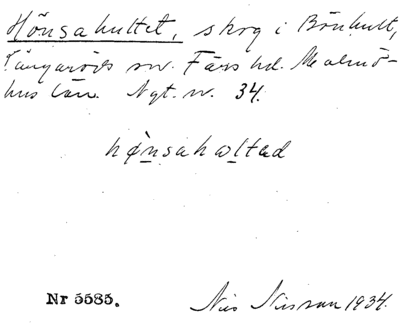 Hönsahultet, skog i Bönhult,
Tångaröds sn. Färs hd. Malmö-
hus län. Ngt. nr. 34.
hønsahɷltad
Nr 5585. Nils Nilsson 1934.